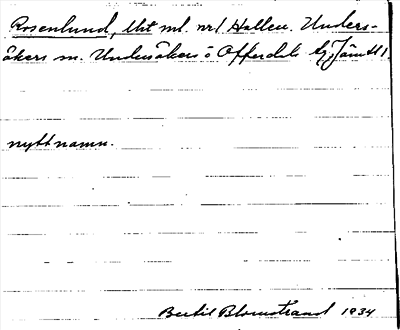 Rosenlund, lht ml. nr1 Hallen. Unders-
åkers sn. Undersåkers o Offerdals tg, Jämtl.
nytt namn.
Bertil Blomstrand 1934